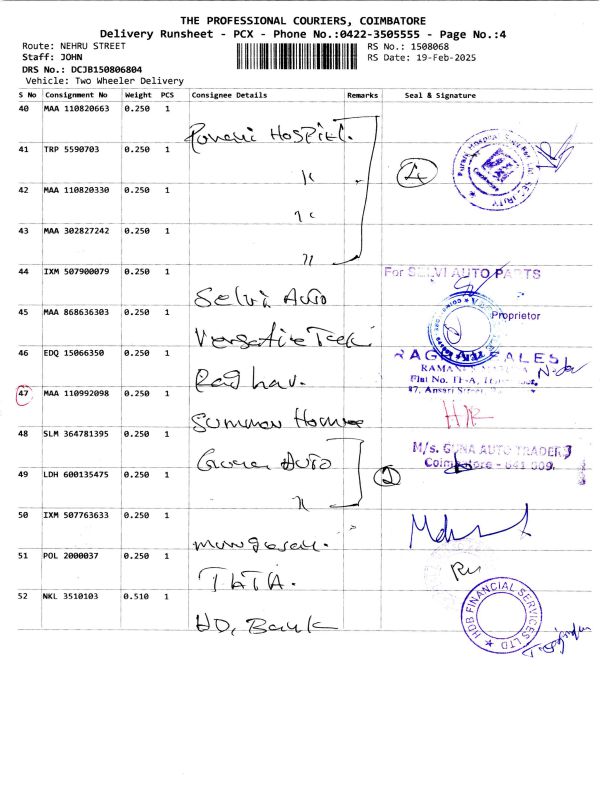 THE PROFESSIONAL COURIERS, COIMBATORE
Delivery Runsheet - PCX - Phone No.:0422-3505555 - Page No.:4
Route: NEHRU STREET
RS No.: 1508068
Staff: JOHN
RS Date: 19-Feb-2025
DRS No.: DCJB150806804
Vehicle: Two Wheeler Delivery
S No Consignment No Weight PCS Consignee Details Remarks Seal & Signature
40 MAA 110820663 0.250 1
Hospital.
41 TRP 5590703 0.250 1
4
42 MAA 110820330 0.250 1
43 MAA 302827242 0.250 1
44 IXM 507900079 0.250 1
For SELVI AUTO PARTS
Selvi Auto
45 MAA 868636303 0.250 1
Proprietor
46 EDQ 15066350 0.250 1
SALES
Raghav.
Flat No.
47 MAA 110992098 0.250 1
Summer
48 SLM 364781395 0.250 1
M/s. GUNA AUTO TRADERS
Guna Auto
Coimbatore - 641 009.
49 LDH 600135475 0.250 1
2
50 IXM 507763633 0.250 1
Murugesan.
51 POL 2000037 0.250 1
TATA.
52 NKL 3510103 0.510 1
HDB FINANCIAL SERVICES LTD
Bank